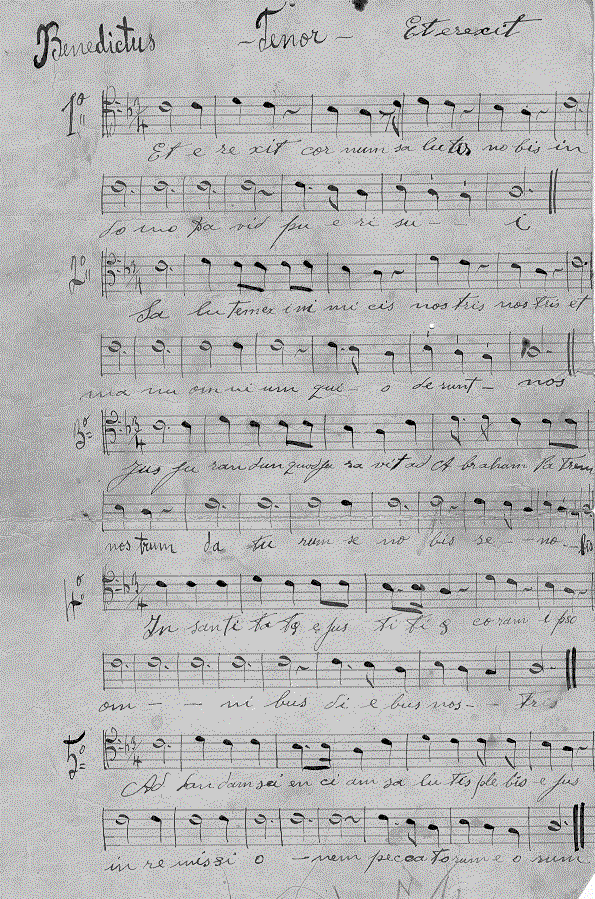 Benedictus - Tenor - Et erexit
1º
Et e re xit cor num sa lu tis no bis in
do mo Da vid pu e ri su - - i
2º
Sa lu tem ex ini mi cis nos tris nos tris et
ma nu om ni um qui - o de runt - nos
3º
Jus ju ran dun quod ju ra vit ad A braham Pa trem
nos trum da tu rum se no bis se - - no - bis
4º
In santi ta te ejus ti ti a coram ipso
om - - ni bus di e bus nos - - tris
5º
Ad dandam sci en ci am sa lu tis ple bis e jus
in re missi o - nem peccatorum e o rum